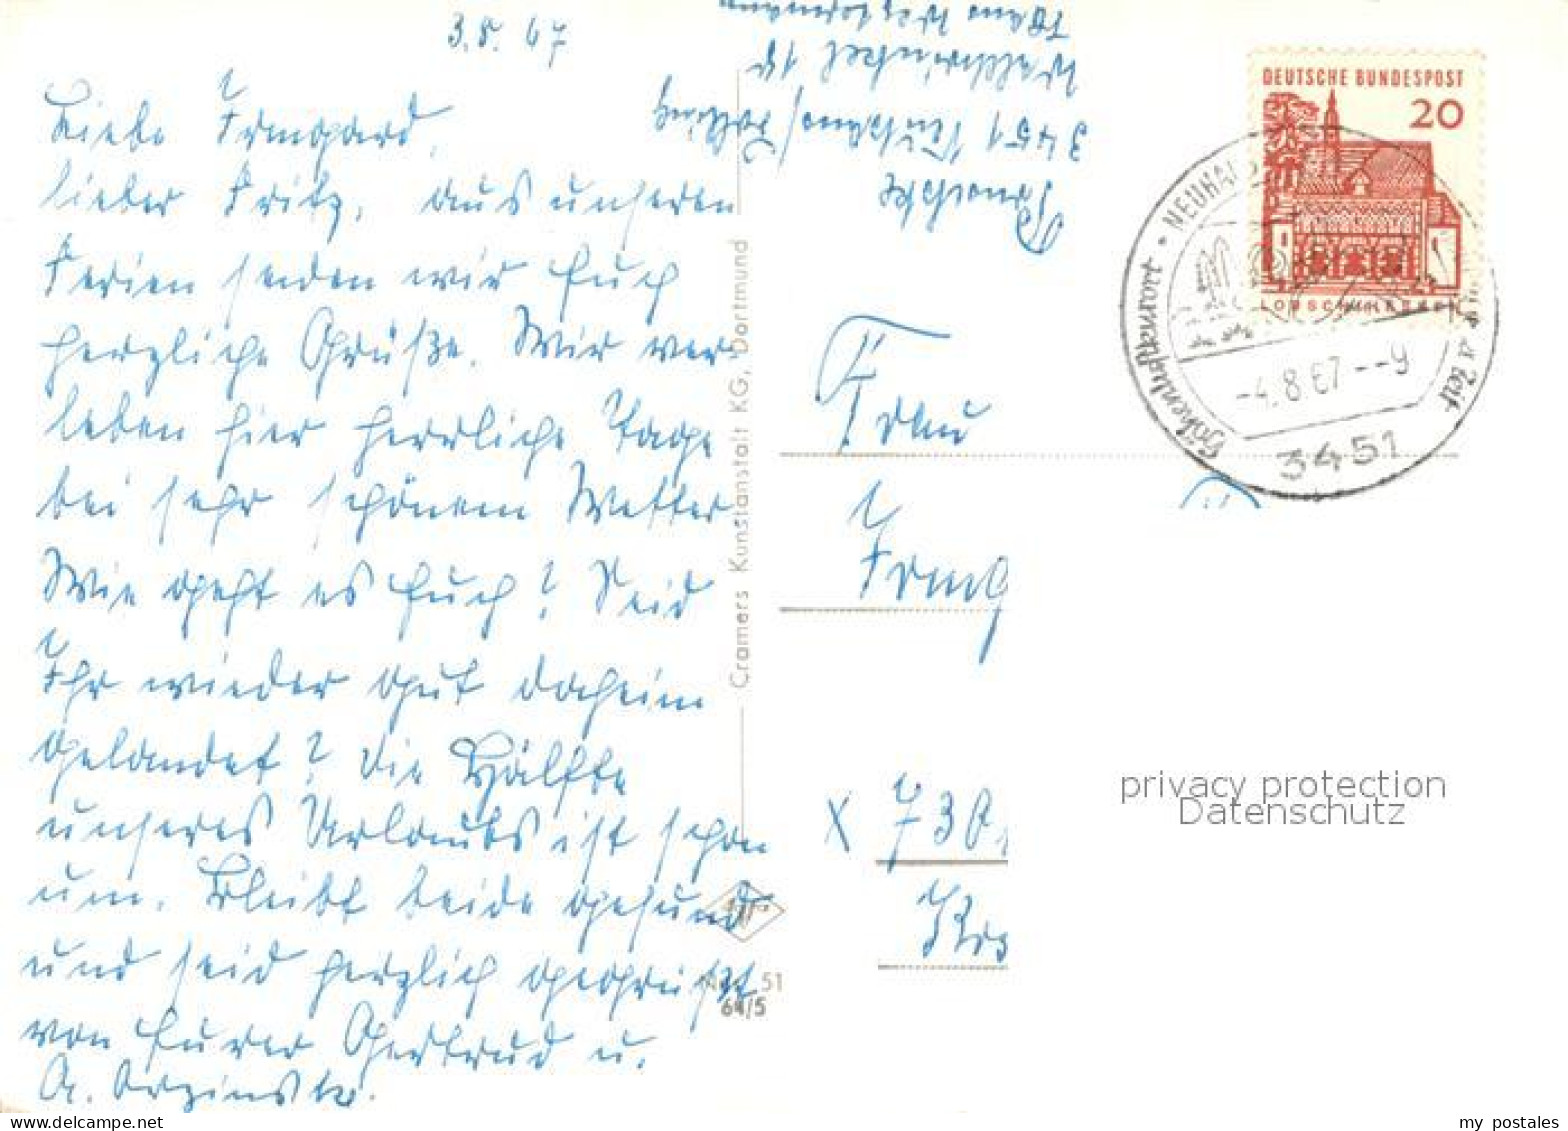 3.8.67
Liebe Irmgard,
lieber Fritz, aus unseren
Ferien senden wir Euch
herzliche Grüße. Wir ver-
leben hier herrliche Tage
bei sehr schönem Wetter
Wie geht es Euch? Seid
Ihr wieder gut daheim
gelandet? Die Hälfte
unseres Urlaubs ist schon
um. Bleibt beide gesund
und seid herzlich gegrüßt
von Eurer Gertrud u.
Cramers Kunstanstalt KG, Dortmund
51
64/5
3451
DEUTSCHE BUNDESPOST
20
LORSCH/HESSEN
Höhenluftkurort • NEUHAUS
-4.8.67--9
3451
Frau
Irmg
X 730
privacy protection
Datenschutz
my_postales